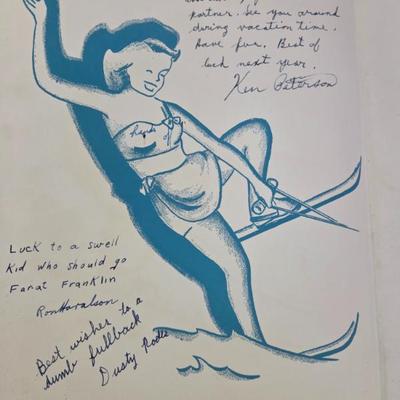 partner. See you around
during vacation time.
Have fun. Best of
luck next year.
Ken Peterson
Luck to a swell
Kid who should go
Farat Franklin
Ron Haralson
Best wishes to a
dumb fullback
Dusty